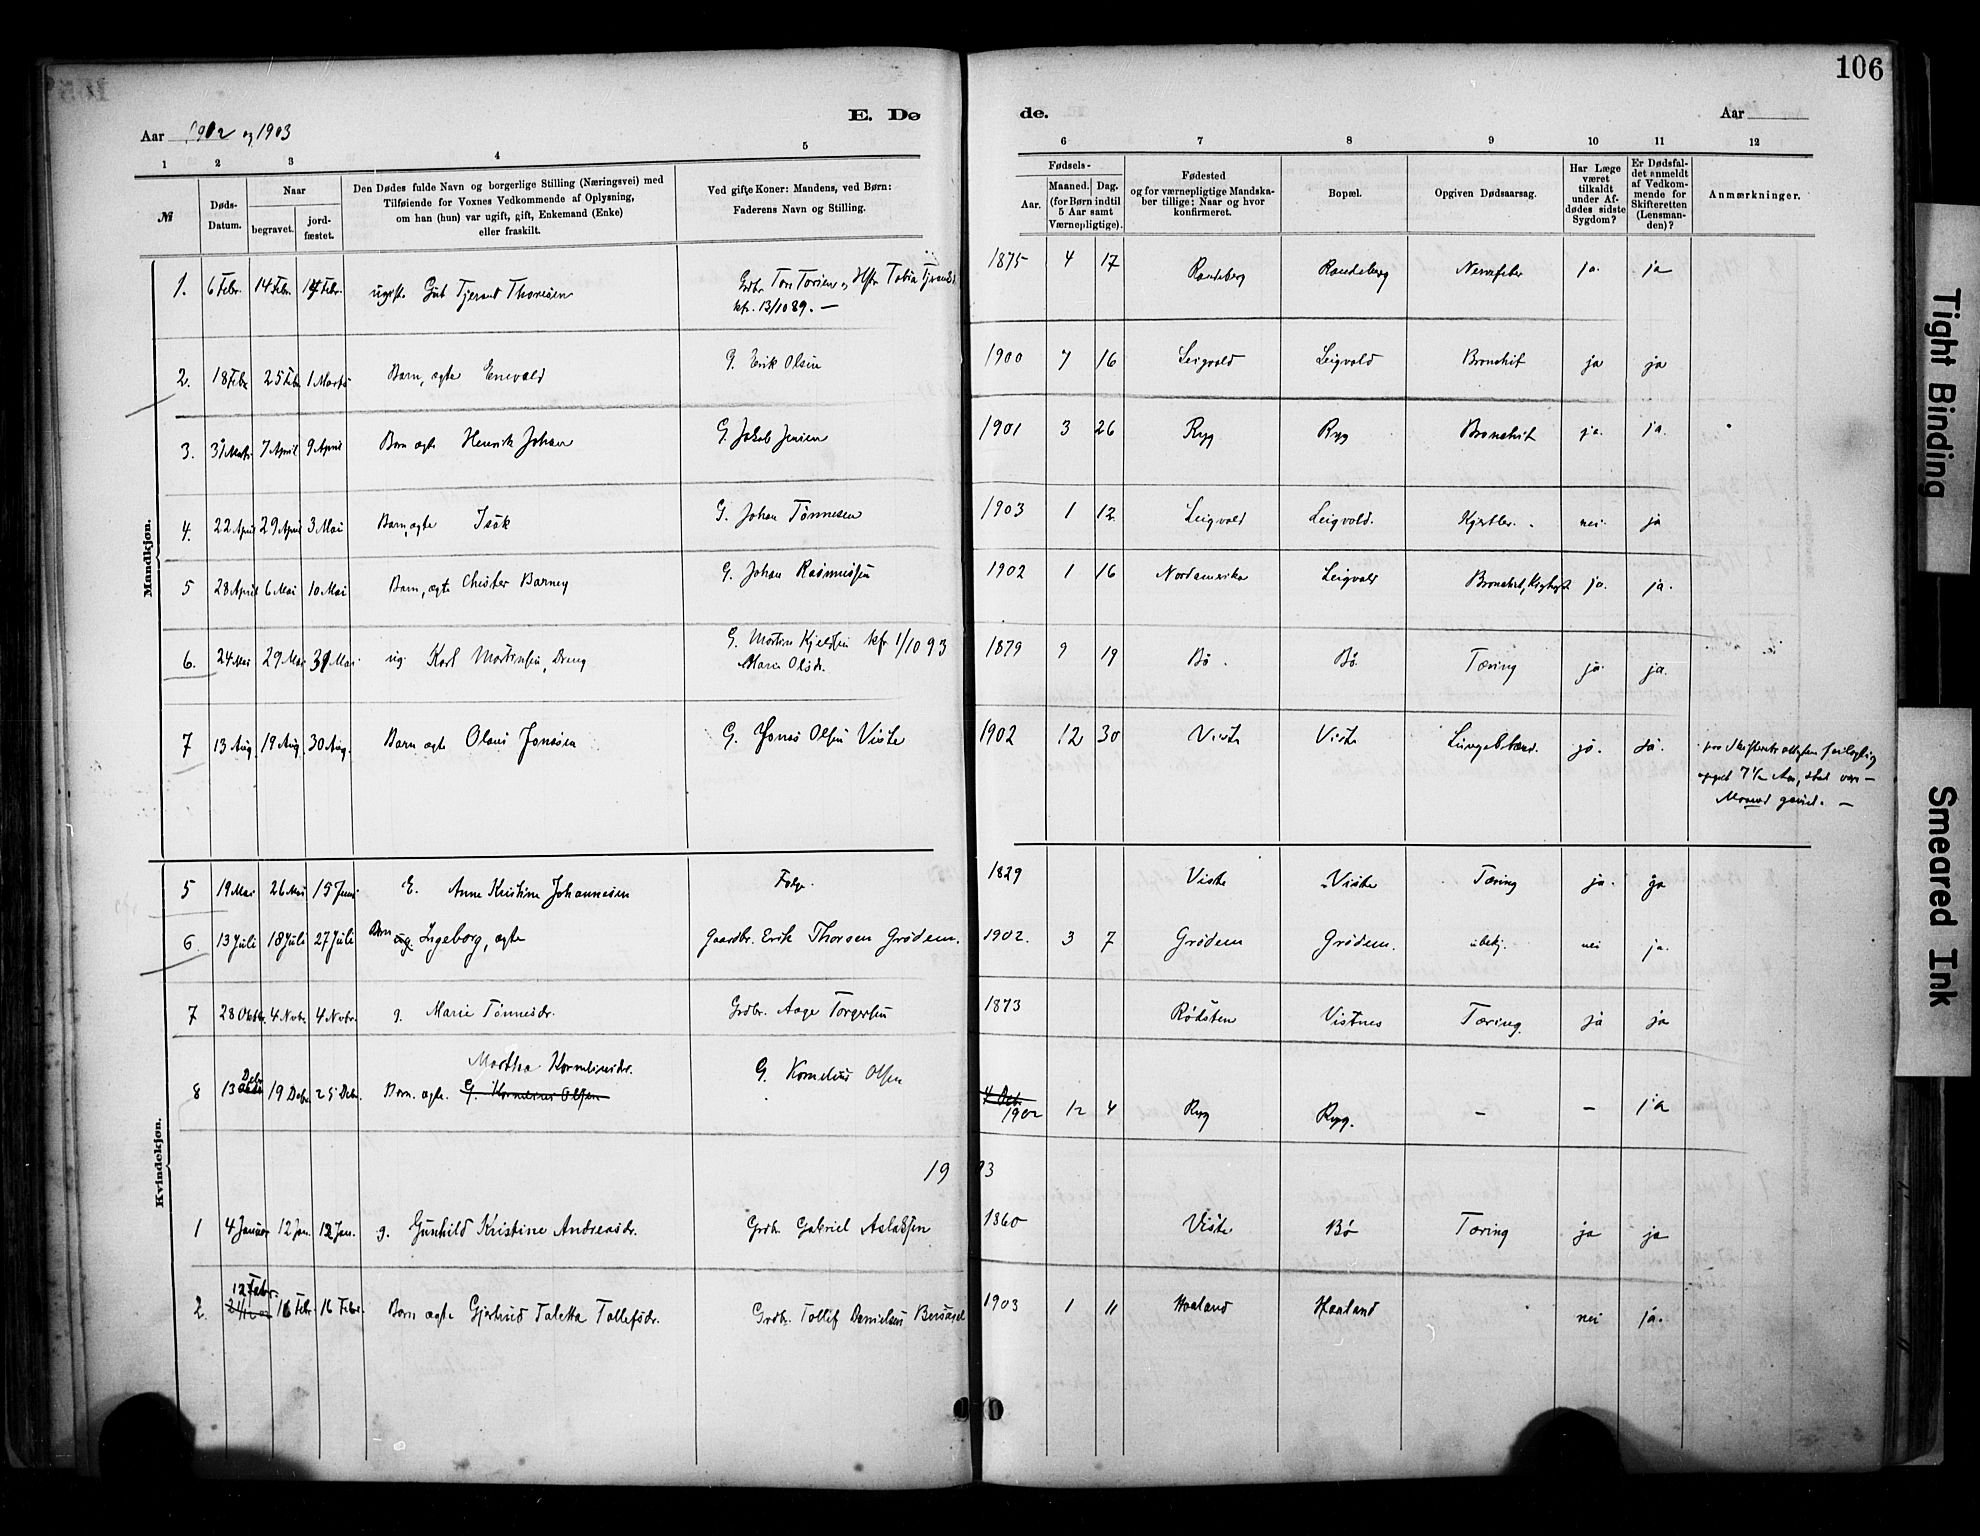 106
E. Dø de.
Aar 1902 og 1903
Aar
1 2 3 4 5 6 7 8 9 10 11 12
№
Døds-Datum.
Naar
begravet.
jord-fæstet.
Den Dødes fulde Navn og borgerlige Stilling (Næringsvei) med
Tilføiende for Voxnes Vedkommende af Oplysning,
om han (hun) var ugift, gift, Enkemand (Enke)
eller fraskilt.
Ved gifte Koner: Mandens, ved Børn:
Faderens Navn og Stilling.
Fødsels-
Aar.
Maaned. Dag.
(for Børn indtil
5 Aar samt
Værnepligtige).
Fødested
og for værnepligtige Mandska-
ber tillige: Naar og hvor
konfirmeret.
Bopæl.
Opgiven Dødsaarsag.
Har Læge
været
tilkaldt
under Af-
dødes sidste
Sygdom?
Er Dødsfal-
det anmeldt
af Vedkom-
mende for
Skifteretten
(Lensman-
den)?
Anmærkninger.
Mandkjøn.
1. 6 Febr. 14 Febr. 14 Febr. ugift Gut Tjerand Thoresen Grdbr. Tore Toresen og Hstr. Tobia 1875 4 17 Randeberg Randeberg ja. ja
kfr. 13/10 89. —
2. 18 Febr 25 Febr 1 Marts Barn, ægte Enevald G. Erik Olsen 1900 7 16 Leigvold Leigvold Bronchit ja ja
3. 31 Marts 7 April 9 April Barn ægte Henrik Johan G. Jakob Jensen 1901 3 26 Ryg Ryg Bronchit ja. ja.
4. 22 April 29 April 3 Mai Barn, ægte Isak G. Johan Tønnesen 1903 1 12 Leigvold Leigvold. Kjertler. nei. ja
5 28 April 6 Mai 10 Mai Barn, ægte Chester Barney G. Johan Rasmussen 1902 1 16 Nordamerika Leigvold Bronchit, ja. ja.
6. 24 Mai 29 Mai 31 Mai. ug. Karl Martinsen, Dreng G. Martin Kjeldsen kfr 1/10 93 1879 9 19 Bø. Bø Tæring ja. ja.
Marie Olsdr.
7 13 Aug 19 Aug. 30 Aug. Barn ægte Olaus Jonasen G. Jonas Olsen Viste 1902 12 30 Viste Viste Lungebetænd. ja. ja. paa Skifterets attesten feilagtig
opgivet 7 1/2 Aar, skal være —
Maaned gammel. —
Kvindekjøn.
5 19 Mai 26 Mai 15 Juni E. Anne Kristine Johannesen Føderaad 1829 Viste Viste Tæring ja. ja
6 13 Juli 18 Juli 27 Juli Barn ug. Ingeborg, ægte Gaardbr. Erik Thorsen Grødem. 1902. 3 7 Grødem Grødem. ubekj. nei ja.
7 28 Oktbr. 4 Novbr. 4 Novbr. g. Marie Tønnesdr. Grdbr. Aage Torgersen 1873 Rødsten Vistnes Tæring. ja ja
Martha Korneliusdr.
8 13 Debr. 19 Debr. 25 Debr. Barn. ægte. G. Kornelius Olsen G. Kornelius Olsen 4 Debr. 1902 12 4 Ryg Ryg. — — ja
19 03
1 4 Januar 12 Jan. 12 Jan. g. Gunhild Kristine Andreasdr. Grdbr. Gabriel Aslaksen 1860 Viste Bø Tæring ja ja
12 Febr.
2. 16 Febr. 16 Febr. Barn ægte Gjertrud Taletta Tollefsdr. Grdbr. Tollef Danielsen Bersagel 1903 1 11 Haaland Haaland nei ja.
Tight Binding
Smeared Ink